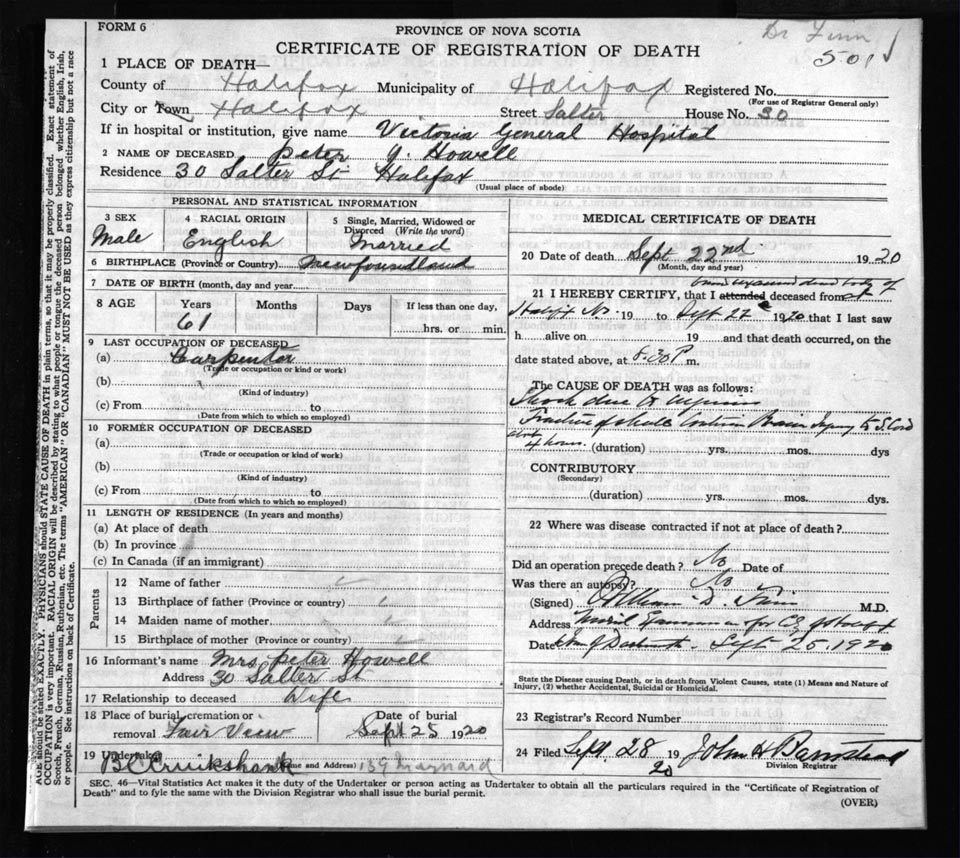 FORM 6
PROVINCE OF NOVA SCOTIA
Dr Finn
501
CERTIFICATE OF REGISTRATION OF DEATH
1 PLACE OF DEATH—
County of Halifax Municipality of Halifax Registered No.
(For use of Registrar General only)
City or Town Halifax Street Salter House No. 30
If in hospital or institution, give name Victoria General Hospital
2 NAME OF DECEASED Peter J. Howell
Residence 30 Salter St Halifax
(Usual place of abode)
PERSONAL AND STATISTICAL INFORMATION
3 SEX Male
4 RACIAL ORIGIN English
5 Single, Married, Widowed or Divorced (Write the word) Married
6 BIRTHPLACE (Province or Country) Newfoundland
7 DATE OF BIRTH (month, day and year)
8 AGE Years 61 Months Days If less than one day, hrs. or min.
9 LAST OCCUPATION OF DECEASED
(a) Carpenter
(Trade or occupation or kind or work)
(b)
(Kind of industry)
(c) From to
(Date from which to which so employed)
10 FORMER OCCUPATION OF DECEASED
(a)
(Trade or occupation or kind of work)
(b)
(Kind of industry)
(c) From to
(Date from which to which so employed)
11 LENGTH OF RESIDENCE (In years and months)
(a) At place of death
(b) In province
(c) In Canada (if an immigrant)
Parents
12 Name of father
13 Birthplace of father (Province or country)
14 Maiden name of mother
15 Birthplace of mother (Province or country)
16 Informant's name Mrs Peter Howell
Address 30 Salter St
17 Relationship to deceased Wife
18 Place of burial, cremation or removal Fair View
Date of burial Sept 25 1920
19 Undertaker (Name and Address) Cruikshank 159 Maynard
MEDICAL CERTIFICATE OF DEATH
20 Date of death Sept 22nd 1920
(Month, day and year)
21 I HEREBY CERTIFY, that I attended deceased from
dead body of
19 to Sept 22 1920 that I last saw
h alive on 19 and that death occurred, on the
date stated above, at 8.30 P m.
The CAUSE OF DEATH was as follows:
Shock due to
Fracture of skull Brain Injury to
4 hours. (duration) yrs. mos. dys
CONTRIBUTORY
(Secondary)
(duration) yrs. mos. dys.
22 Where was disease contracted if not at place of death?
Did an operation precede death? No Date of
Was there an autopsy? No
(Signed) William D. Finn M.D.
Address
Date Sept 25. 1920
State the Disease causing Death, or in death from Violent Causes, state (1) Means and Nature of
Injury, (2) whether Accidental, Suicidal or Homicidal.
23 Registrar's Record Number
24 Filed Sept. 28 1920 John H Barnstead
Division Registrar
SEC. 46—Vital Statistics Act makes it the duty of the Undertaker or person acting as Undertaker to obtain all the particulars required in the "Certificate of Registration of
Death" and to fyle the same with the Division Registrar who shall issue the burial permit.
(OVER)
AGE should be stated EXACTLY. PHYSICIANS should STATE CAUSE OF DEATH in plain terms, so that it may be properly classified. Exact statement of
OCCUPATION is very important. RACIAL ORIGIN will be described by stating to what people or tongue the deceased person belonged whether English, Irish,
Scotch, French, German, Russian, Ruthenian, etc. The terms "AMERICAN" OR "CANADIAN" MUST NOT BE USED as they express citizenship but not a race
or people. See instructions on back of Certificate.